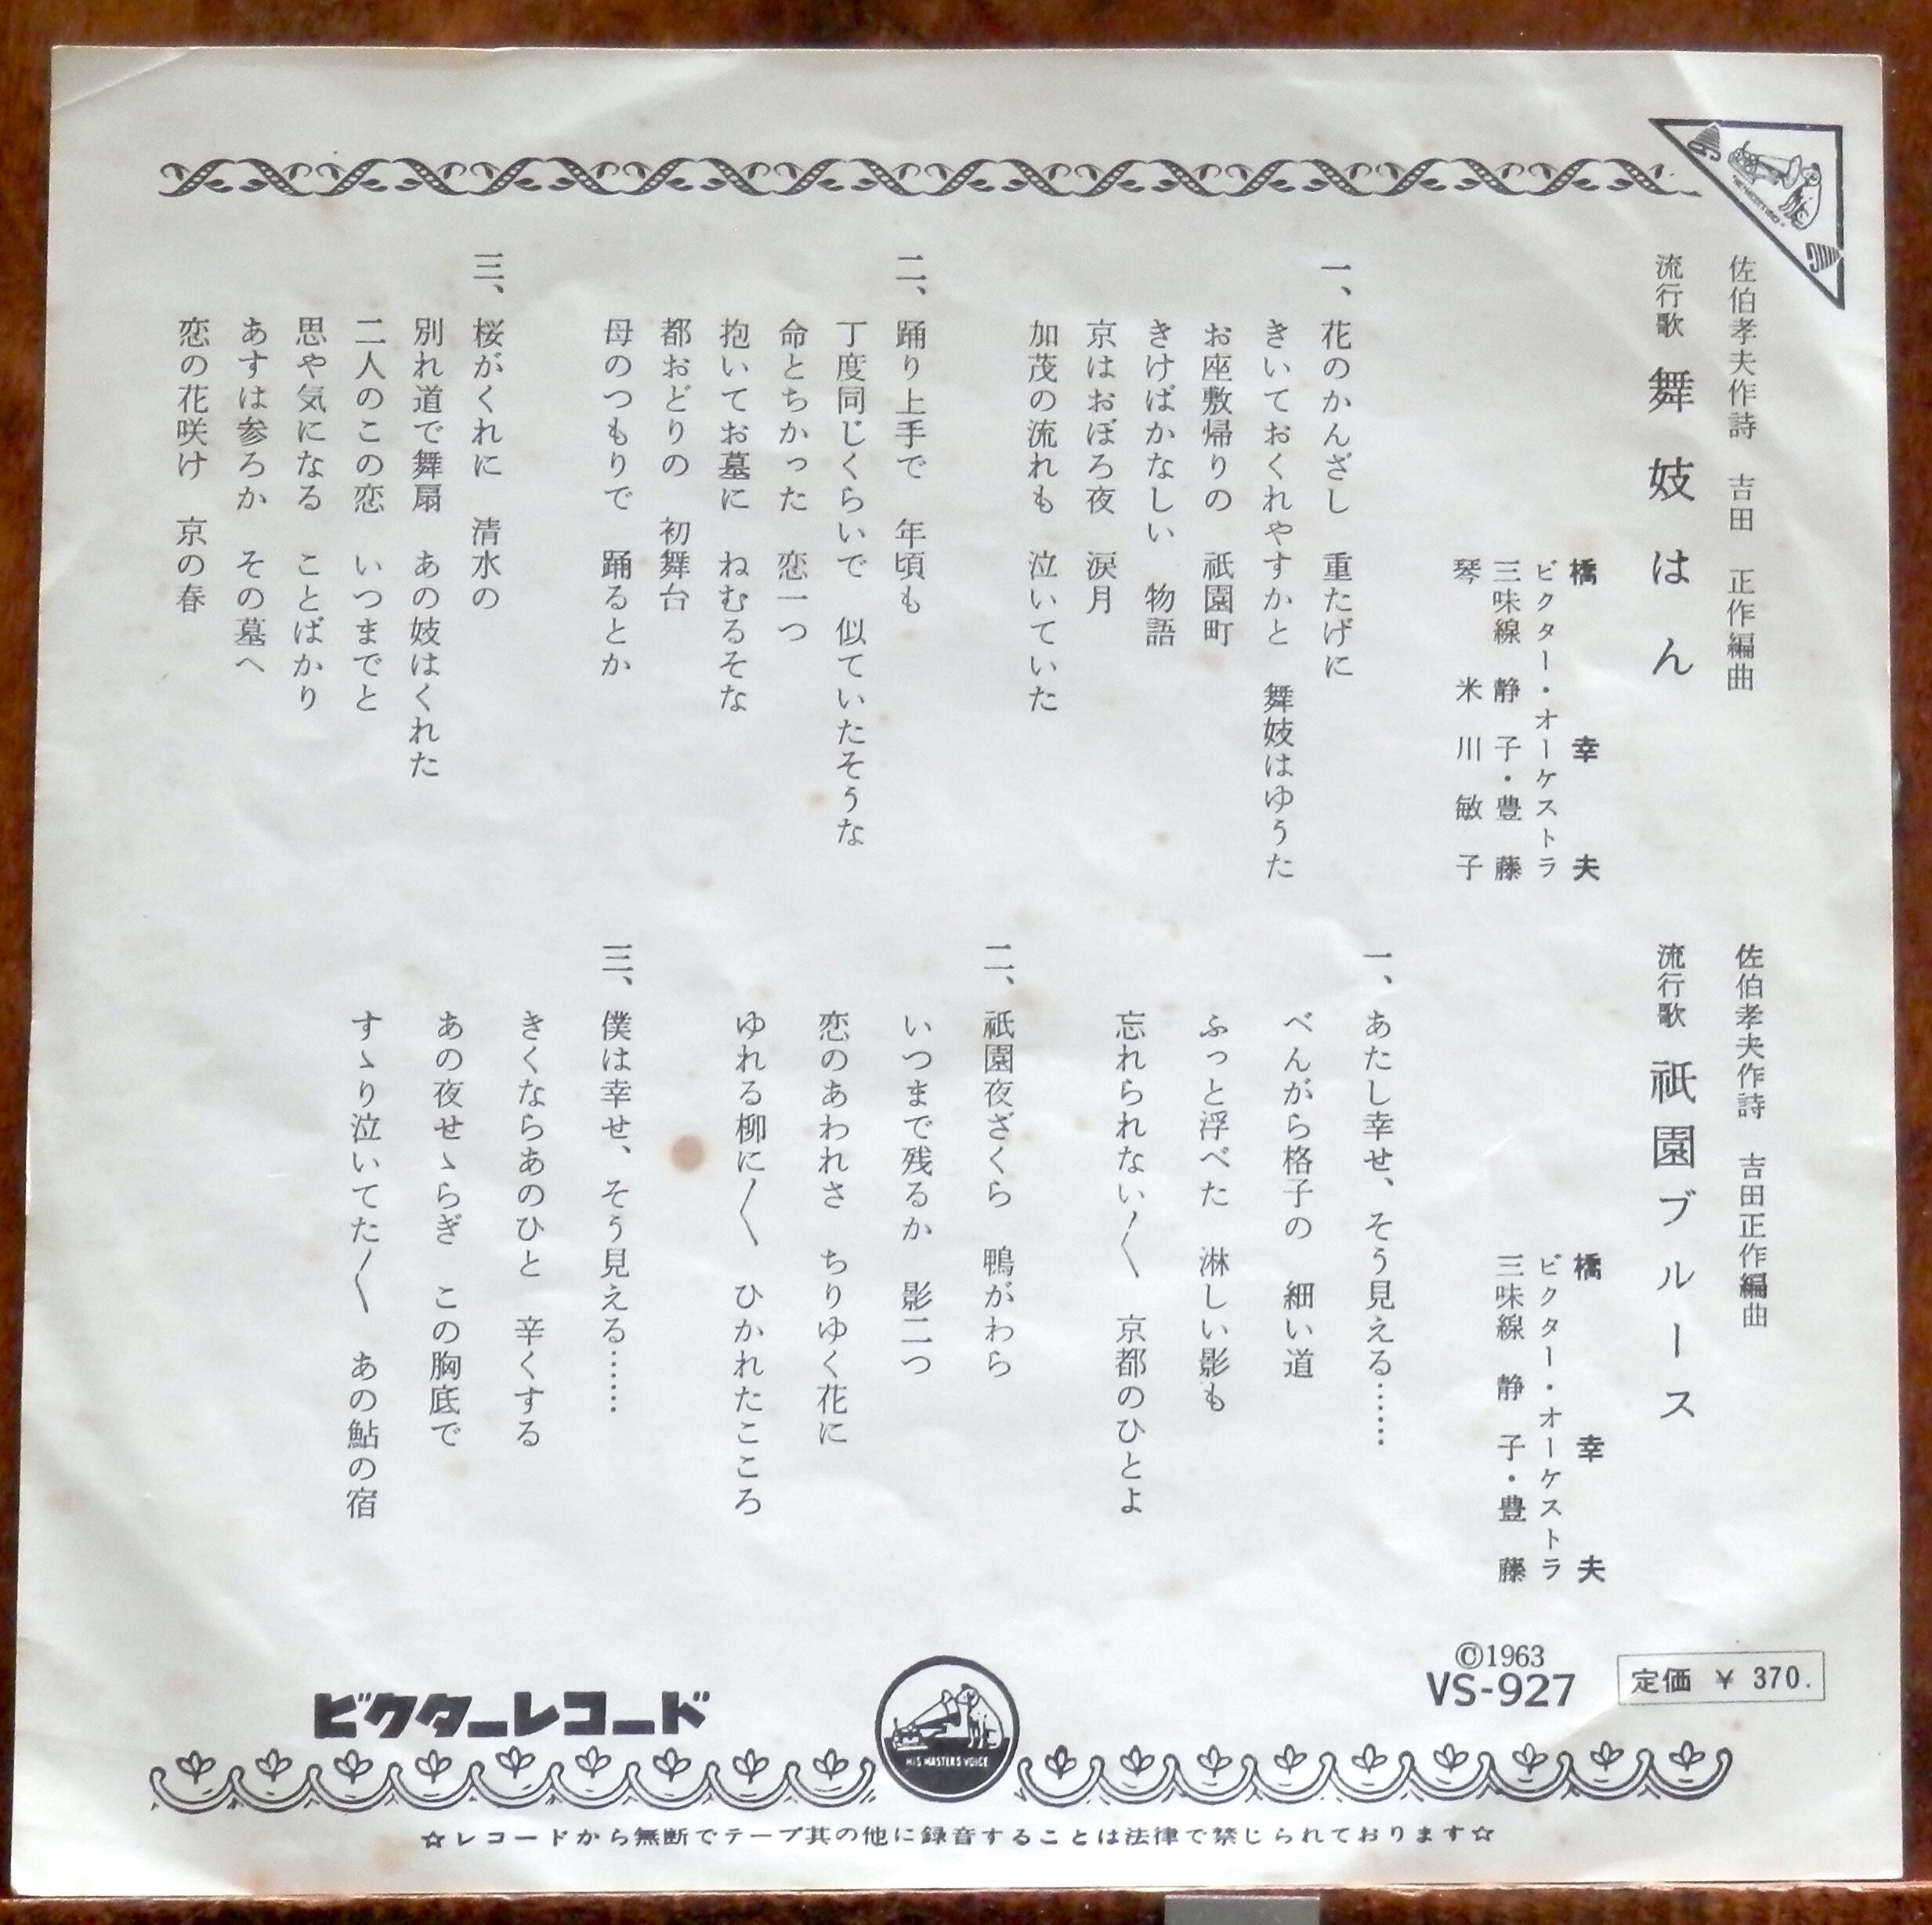 佐伯孝夫作詩　吉田　正作編曲
流行歌　舞妓はん
橋幸夫
ビクター・オーケストラ
三味線　静子・豊藤
琴　米川敏子
一、花のかんざし　重たげに
きいておくれやすかと　舞妓はゆうた
お座敷帰りの　祇園町
きけばかなしい　物語
京はおぼろ夜　涙月
加茂の流れも　泣いていた
二、踊り上手で　年頃も
丁度同じくらいで　似ていたそうな
命とちかった　恋一つ
抱いてお墓に　ねむるそな
都おどりの　初舞台
母のつもりで　踊るとか
三、桜がくれに　清水の
別れ道で舞扇　あの妓はくれた
二人のこの恋　いつまでと
思や気になる　ことばかり
あすは参ろか　その墓へ
恋の花咲け　京の春
佐伯孝夫作詩　吉田正作編曲
流行歌　祇園ブルース
橋幸夫
ビクター・オーケストラ
三味線　静子・豊藤
一、あたし幸せ、そう見える……
べんがら格子の　細い道
ふっと浮べた　淋しい影も
忘れられない〳〵　京都のひとよ
二、祇園夜ざくら　鴨がわら
いつまで残るか　影二つ
恋のあわれさ　ちりゆく花に
ゆれる柳に〳〵　ひかれたこころ
三、僕は幸せ、そう見える……
きくならあのひと　辛くする
あの夜せゝらぎ　この胸底で
すゝり泣いてた〳〵　あの鮎の宿
©1963
VS-927
定価 ¥ 370.
ビクターレコード
HIS MASTERS VOICE
☆レコードから無断でテープ其の他に録音することは法律で禁じられております☆